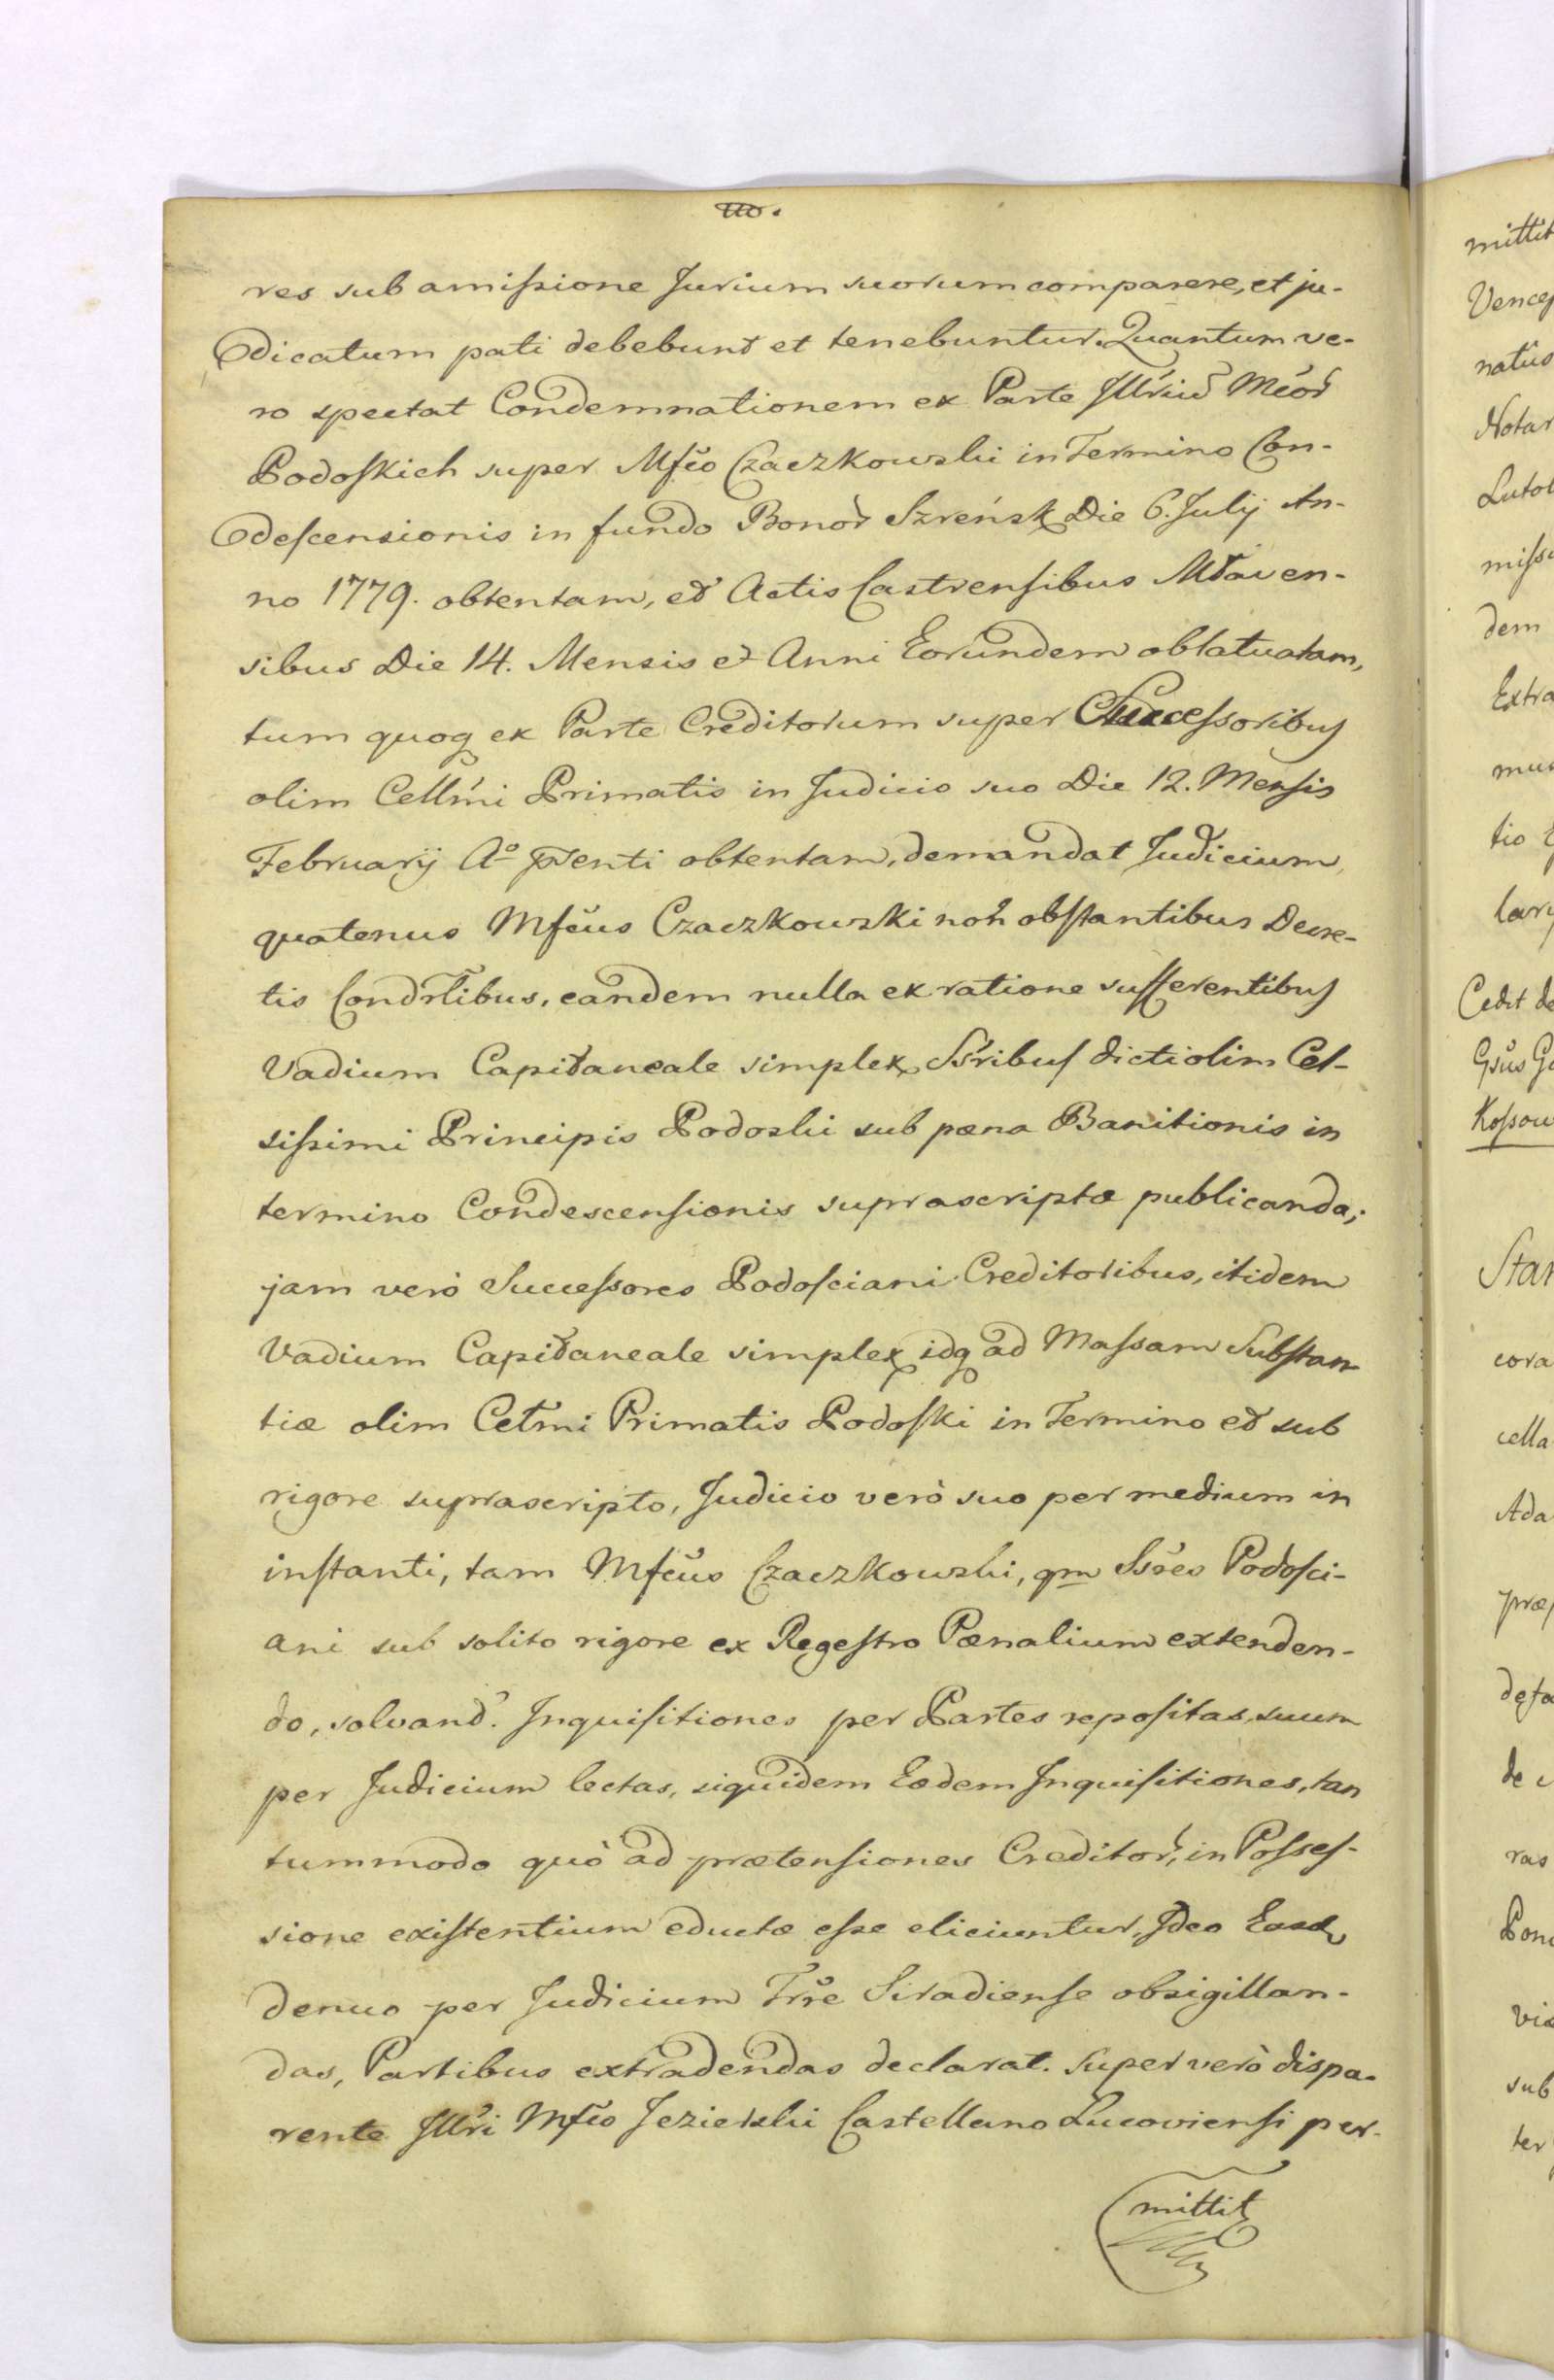 res sub amissione Jurium suorum comparere, et ju-
dicatum pati debebunt et tenebuntur. Quantum ve-
ro spectat Condemnationem ex Parte Illriu Mcor
Podoskich super Mfco Czaczkowski in Termino Con-
descensionis in fundo Bonor Szreńsk Die 6. Julij An-
no 1779. obtentam, et Actis Castrensibus Mlaven-
sibus Die 14. Mensis et Anni Eorundem oblatuatam,
tum quoq ex Parte Creditorum super Successoribus
olim Cellmi Primatis in Judicio suo Die 12. Mensis
Februarij Ao pnti obtentam, demandat Judicium,
quatenus Mfcus Czaczkowski non obstantibus Decre-
tis Condrlibus, eandem nulla ex ratione sufferentibus
Vadium Capitaneale simplex, Ssribus dicti olim Cel-
sissimi Principis Podoski sub pæna Banitionis in
termino Condescensionis suprascriptæ publicanda;
jam verò Successores Podosciani Creditoribus, itidem
Vadium Capitaneale simplex idq ad Massam Substan-
tiæ olim Celmi Primatis Podoski in Termino et sub
rigore suprascripto, Judicio verò suo per medium in
instanti, tam Mfcus Czaczkowski, qm Ssres Podosci-
ani sub solito rigore ex Regestro Pænalium extenden-
do, solvand. Inquisitiones per Partes repositas, suum
per Judicium lectas, siquidem Eædem Inquisitiones, tan
tummodo quò ad prætensiones Creditor, in Posses-
sione existentium eductæ esse eliciuntur, Ideo Easd
denuo per Judicium Trre Siradiense obsigillan-
das, Partibus extradendas declarat. Super verò dispa-
rente Illri Mfco Jezierski Castellano Lucoviensi per-
mittit
mittit
Vencep
natus
Notar
Lutol
misso
dem
Extra
mus
tio
lary
Cedit de
Gsus Go
Kossow
Star
cora
cella
Ada
præp
defa
de c
ras
Pon
via
sub
ter